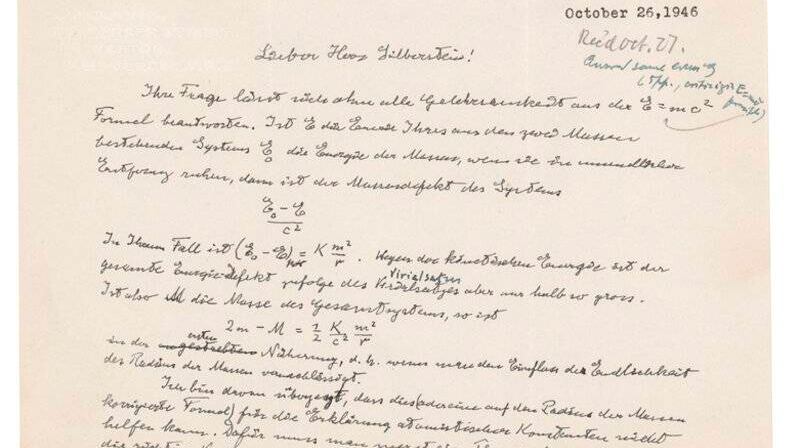 October 26, 1946
Rec'd Oct. 27.
Answ'd same evening
(5pp., criticizing E=mc²
formula)
Lieber Herr Silberstein!
Ihre Frage lässt sich ohne alle Gelehrsamkeit aus der E = mc²
Formel beantworten. Ist E die Energie Ihres aus den zwei Massen
bestehenden Systems E₀ die Energie der Massen, wenn sie in unendlicher
Entfernung ruhen, dann ist der Massendefekt des Systems
E₀ - E
c²
In Ihrem Fall ist (E₀ - E) = K m²/r . Wegen der kinetischen Energie ist der
Virialsatzes
gesamte Energie-Defekt zufolge des aber nur halb so gross.
Ist also M die Masse des Gesamtsystems, so ist
2m - M = 1/2 K/c² m²/r
ersten
in der angestrebten Näherung, d.h. wenn man den Einfluss der Endlichkeit
des Radius der Massen vernachlässigt.
Ich bin davon überzeugt, dass dies (oder eine auf den Radius der Massen
korrigierte Formel) für die Erklärung atomistischer Konstanten nicht
helfen kann. Dafür muss man